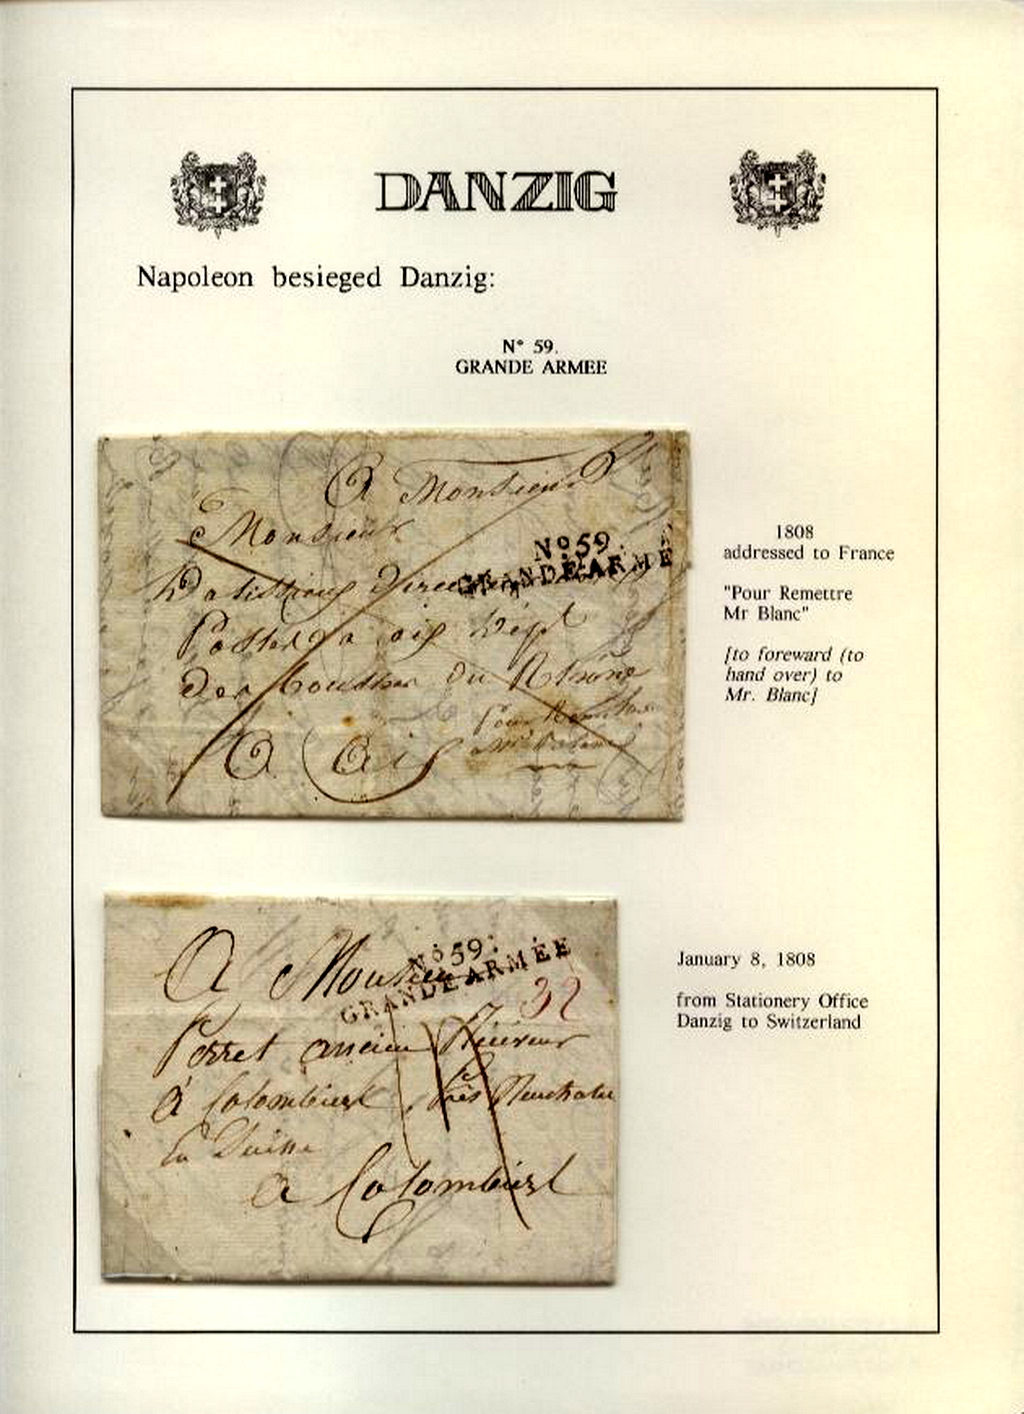 DANZIG
Napoleon besieged Danzig:
N° 59.
GRANDE ARMEE
A Monsieur
Monsieur
No 59.
GRANDE ARMÉE
Postes a aix Dépt
Des bouches Du Rhône
Pour Remettre
Mr
A Aix
1808
addressed to France
"Pour Remettre
Mr Blanc"
[to foreward (to
hand over) to
Mr. Blanc]
A Monsieur
No 59.
GRANDE ARMÉE
32
Perret ancien Receveur
à Colombier, Près Neuchatel
En Suisse
a Colombier
January 8, 1808
from Stationery Office
Danzig to Switzerland